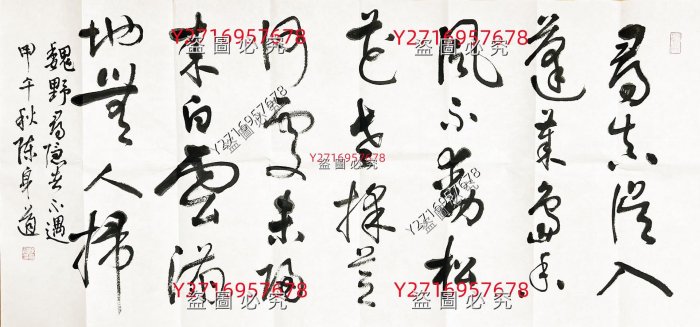 尋真误入
蓬莱島香
風不動松
花老採芝
何處未歸
来白雲满
地無人掃
魏野尋隱者不遇
甲午秋陈身道
Y2716957678
盜圖必究
Y2716957678
盜圖必究
Y2716957678
盜圖必究
Y2716957678
盜圖必究
Y2716957678
盜圖必究
Y2716957678
盜圖必究
Y2716957678
盜圖必究